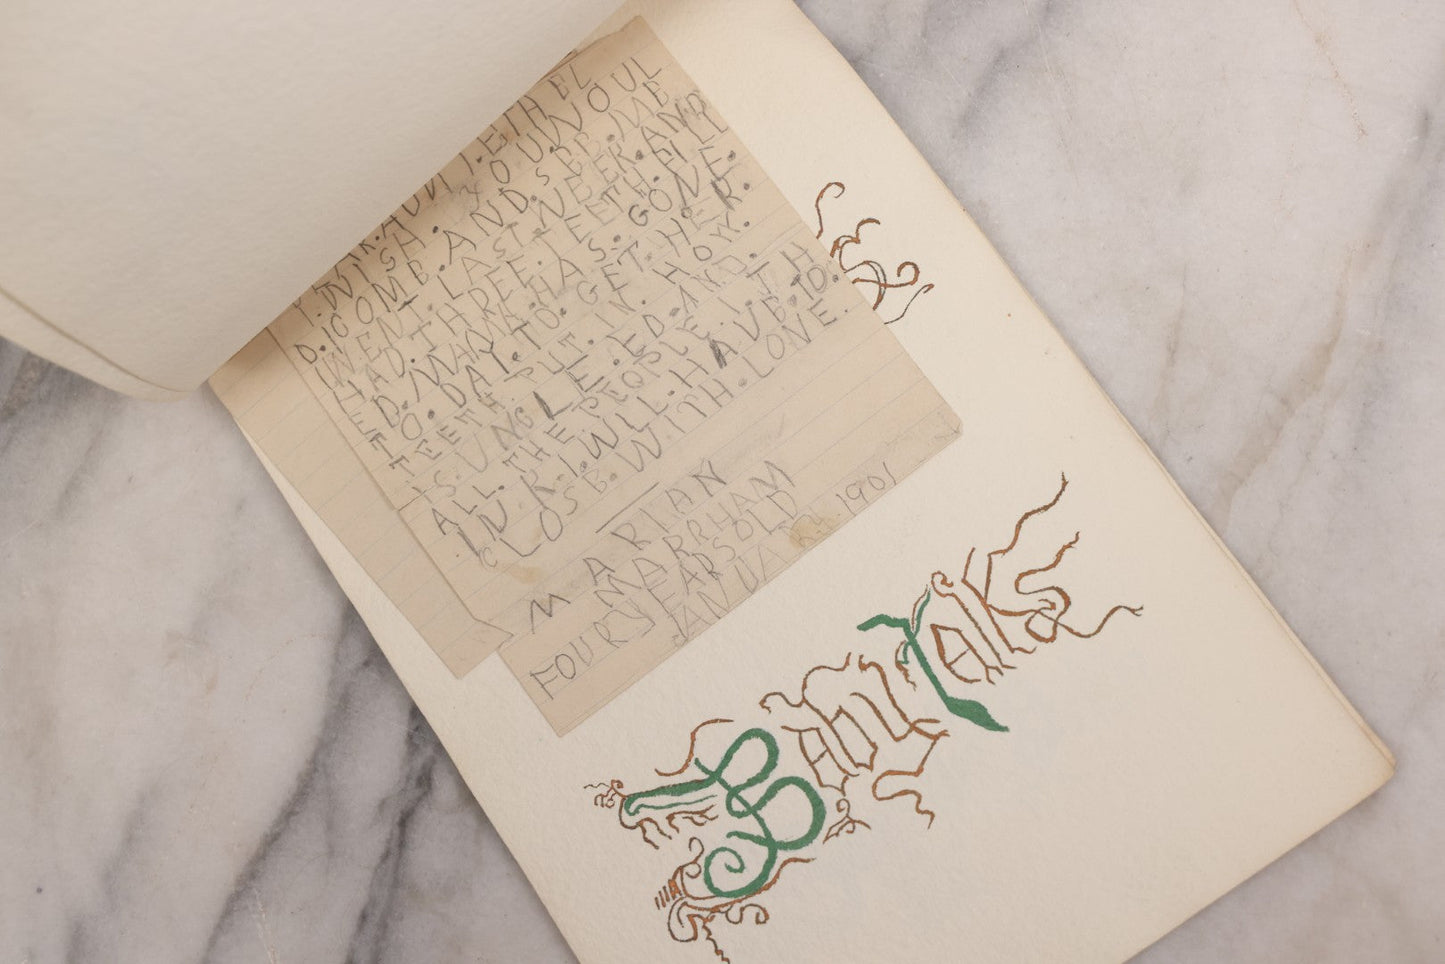 AUNT.ETHEL
I.WISH.YOU.WOUL
D.COMB.AND.SBB.MB
I.WENT.LAST.WEEK.AND
HAD.THREE.TEETH.FILL
ED.MAMA.HAS.GONE.
TO.DAY.TO.GET.HER.
TEETH.PUT.IN.HOW.
IS.UNCLE.ED.AND.
ALL.THE.PEOPLE.I.TH
IN.K.I.WLL.HAVB.TO.
CLOSB.WITH.LOVE.
MARIAN
MARRHAM
FOUR YEARS OLD
JANUARY 1901
Baby Talks